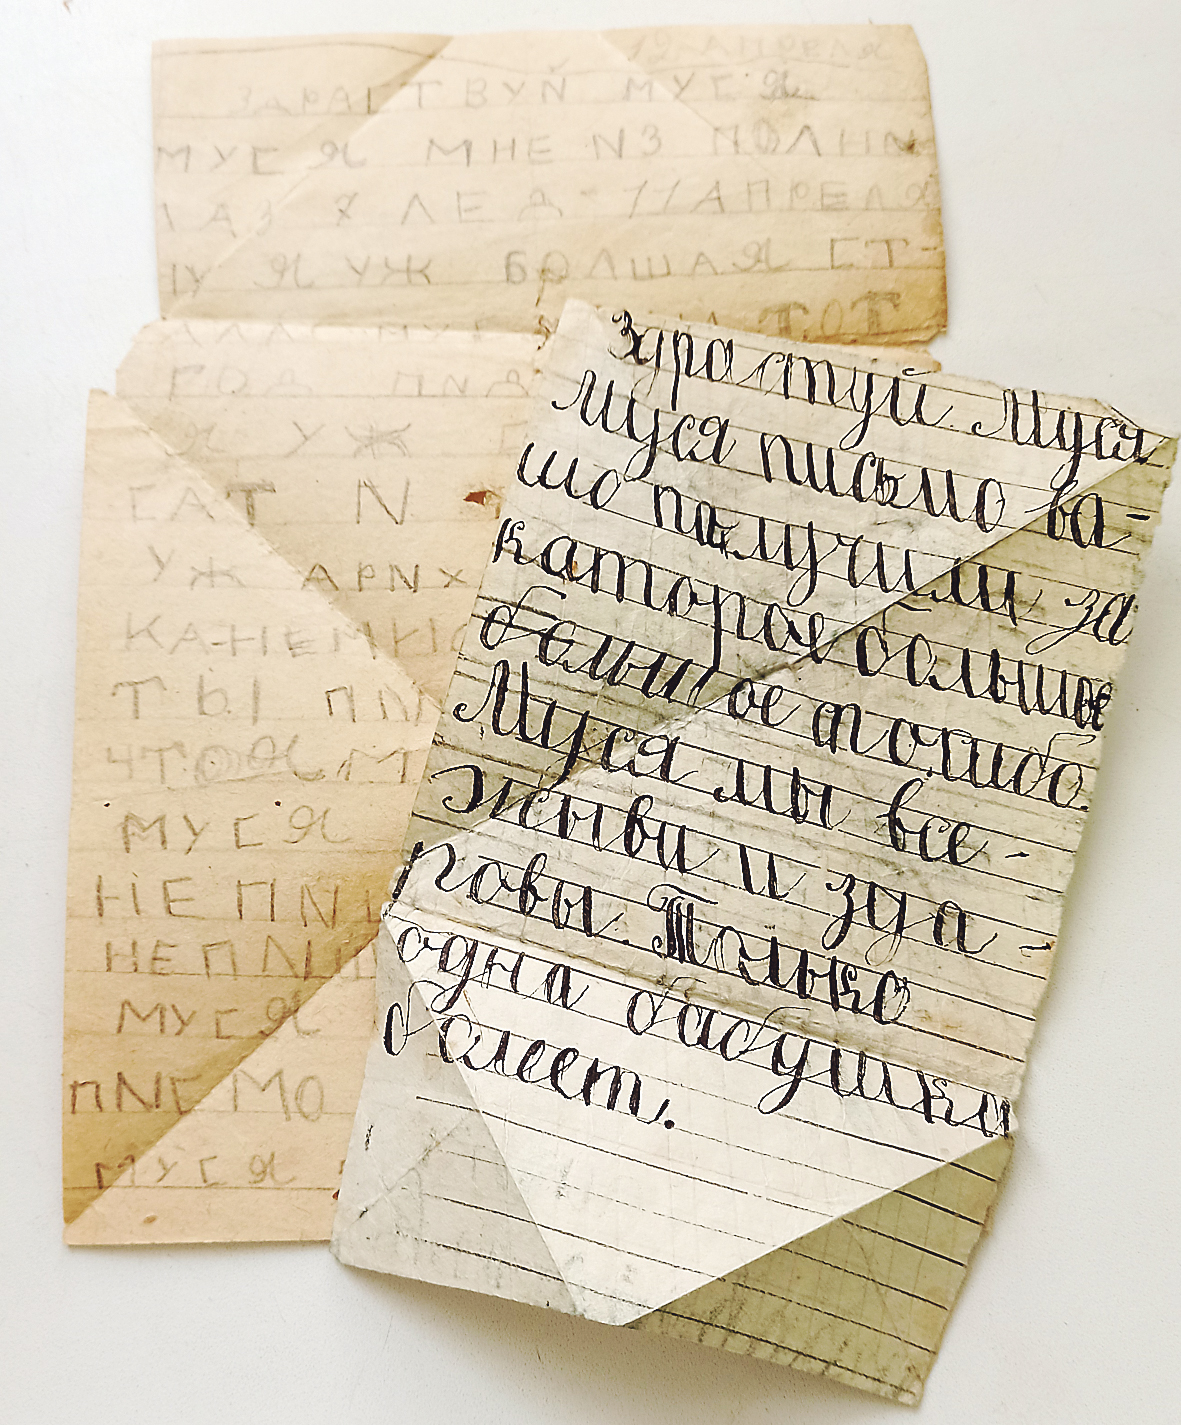 12 АПРЕЛЯ
ЗДРАСТВУЙ МУСЯ
МУСЯ МНЕ NЗ ПОЛНN
ЛАЗ 7 ЛЕД 11 АПРЕЛЯ
НУ Я УЖ БОЛШАЯ СТ-
ТОТ
ГОД ПNД
Я УЖ
САТ N
УЖ АРNХ
КАНЕМНО
ТЫ ПN
ЧТО Я М
МУСЯ
НЕ ПN
НЕ ПN
МУСЯ
ПNСМО
МУСЯ
Здрастуй Муся
Муся письмо ва-
шо палучили за
каторое большые
большое спосибо.
Муся мы все-
жывы и зда-
ровы. Только
одна бабушка
болеет.